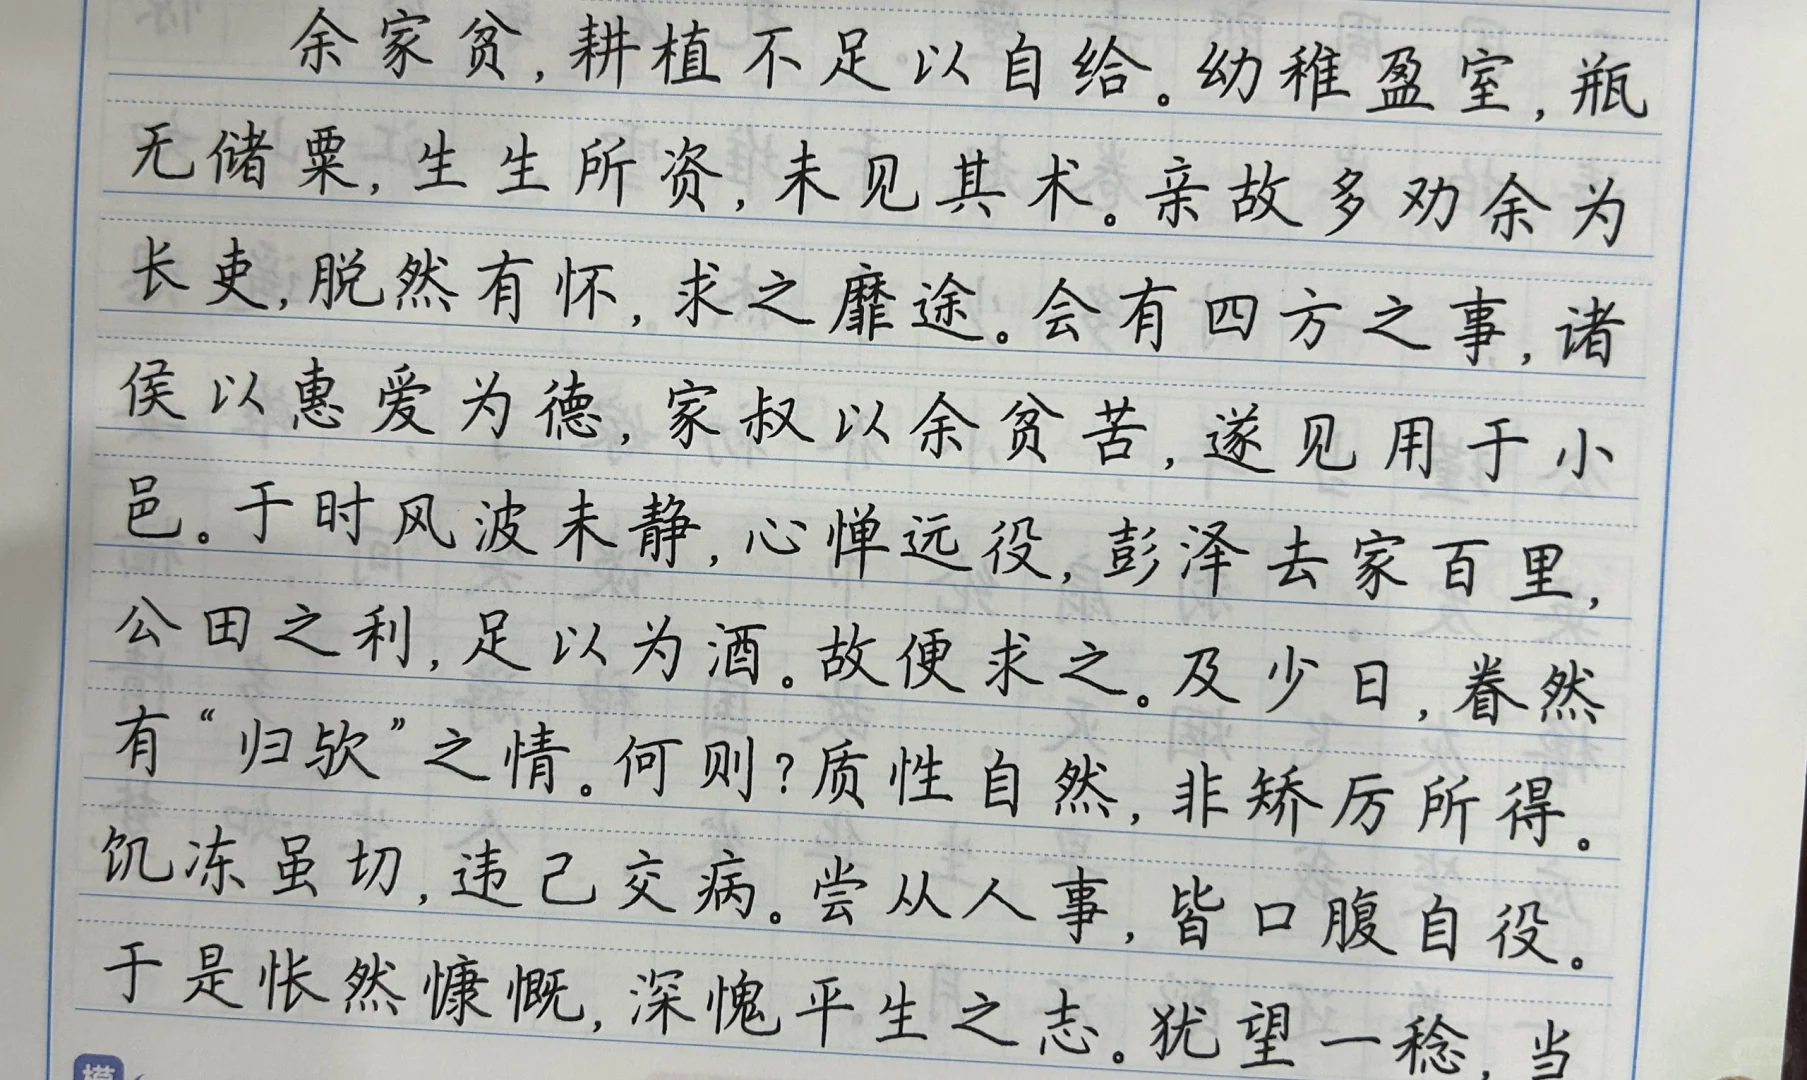 余家贫,耕植不足以自给。幼稚盈室,瓶
无储粟,生生所资,未见其术。亲故多劝余为
长吏,脱然有怀,求之靡途。会有四方之事,诸
侯以惠爱为德,家叔以余贫苦,遂见用于小
邑。于时风波未静,心惮远役,彭泽去家百里,
公田之利,足以为酒。故便求之。及少日,眷然
有“归欤”之情。何则?质性自然,非矫厉所得。
饥冻虽切,违己交病。尝从人事,皆口腹自役。
于是怅然慷慨,深愧平生之志。犹望一稔,当